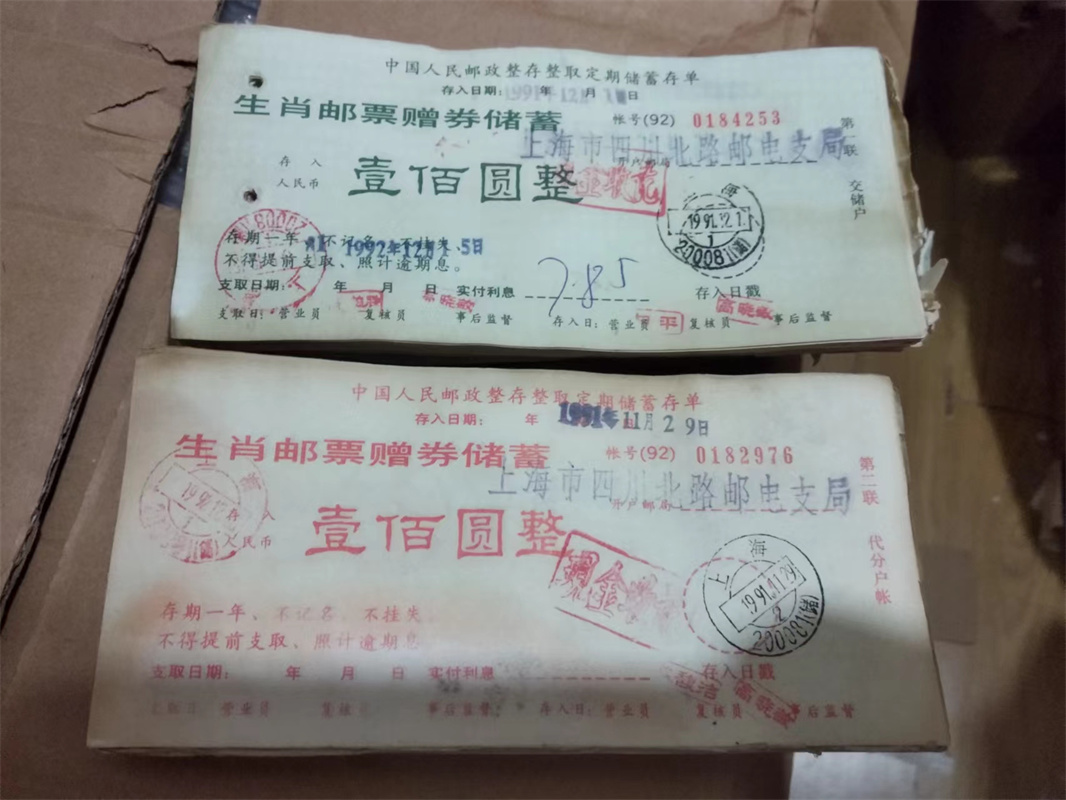 中国人民邮政整存整取定期储蓄存单
存入日期: 1991年12月1日 年 月 日
生肖邮票赠券储蓄
帐号(92) 0184253
上海市四川北路邮电支局
开户邮局
第一联 交储户
存入
人民币
壹佰圆整
海
1991.12.1
1
200081(支)
存期一年、不记名、不挂失、
1992年12月 5日
不得提前支取、照计逾期息。
7.85
支取日期: 年 月 日 实付利息 存入日戳
高晓敏
平
支取日: 营业员 复核员 事后监督 存入日: 营业员 复核员 事后监督
中国人民邮政整存整取定期储蓄存单
存入日期: 年
1991年11月29日
生肖邮票赠券储蓄
帐号(92) 0182976
上海市四川北路邮电支局
开户邮局
第二联 代分户帐
存入
人民币
壹佰圆整
现金
上海
1991.11.29
2
存期一年、不记名、不挂失、
不得提前支取、照计逾期息
支取日期: 年 月 日 实付利息 存入日戳
支取日: 营业员 复核员 事后监督 存入日: 营业员 复核员 事后监督